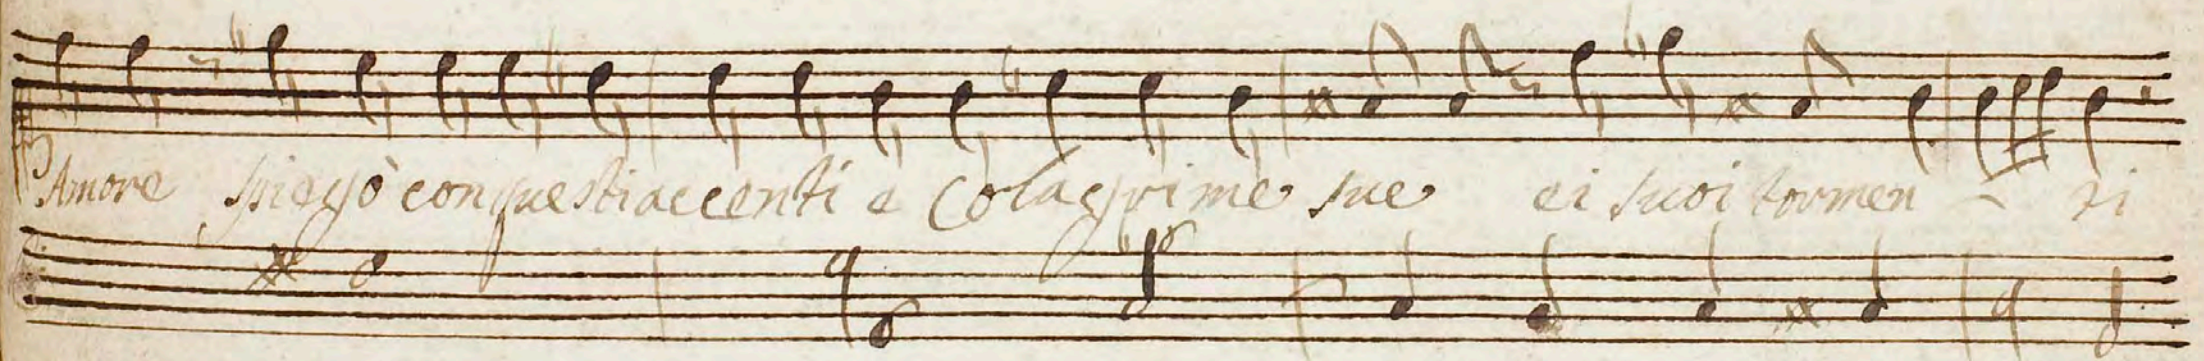 Amore spiegò con questi accenti e Co lagrime sue ei suoi tormen - ti